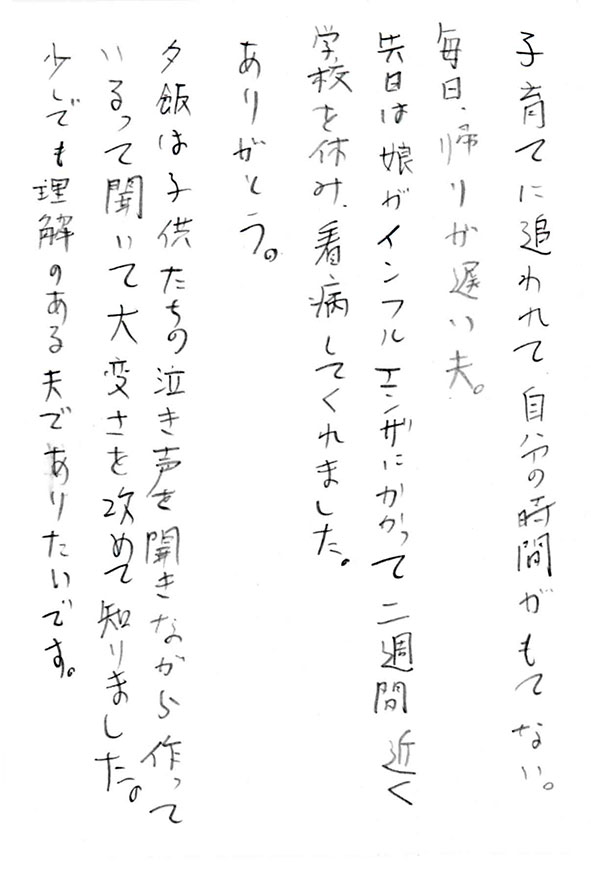 子育てに追われて自分の時間がもてない。
毎日、帰りが遅い夫。
先日は娘がインフルエンザにかかって二週間近く
学校を休み、看病してくれました。
ありがとう。
夕飯は子供たちの泣き声を聞きながら作って
いるって聞いて大変さを改めて知りました。
少しでも理解のある夫でありたいです。